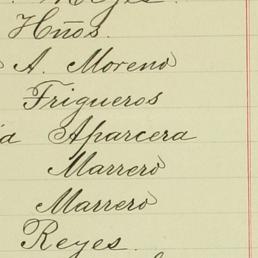 Reyes.
Hños.
A. Moreno
Frigueros
Aparcera
Marrero
Marrero
Reyes.